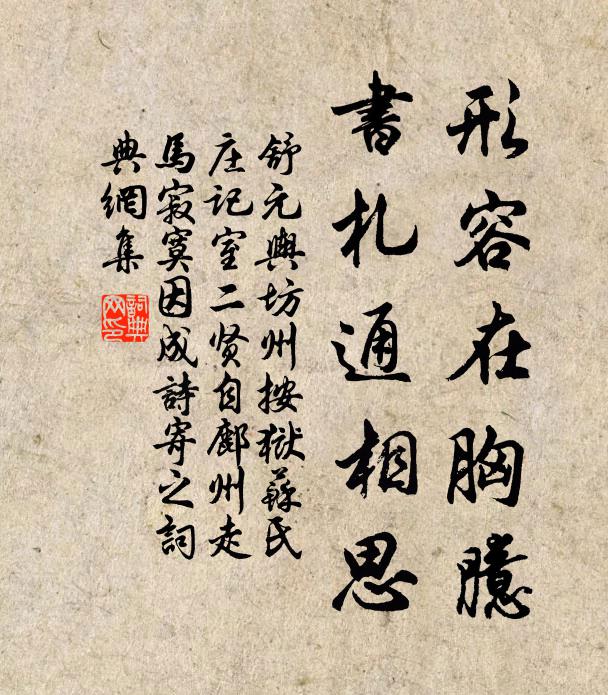 形容在胸臆
書札通相思
舒元輿坊州按獄蘇氏
庄記室二贤自鄜州走
馬寂寞因成詩寄之詞
典網集
詞典網印